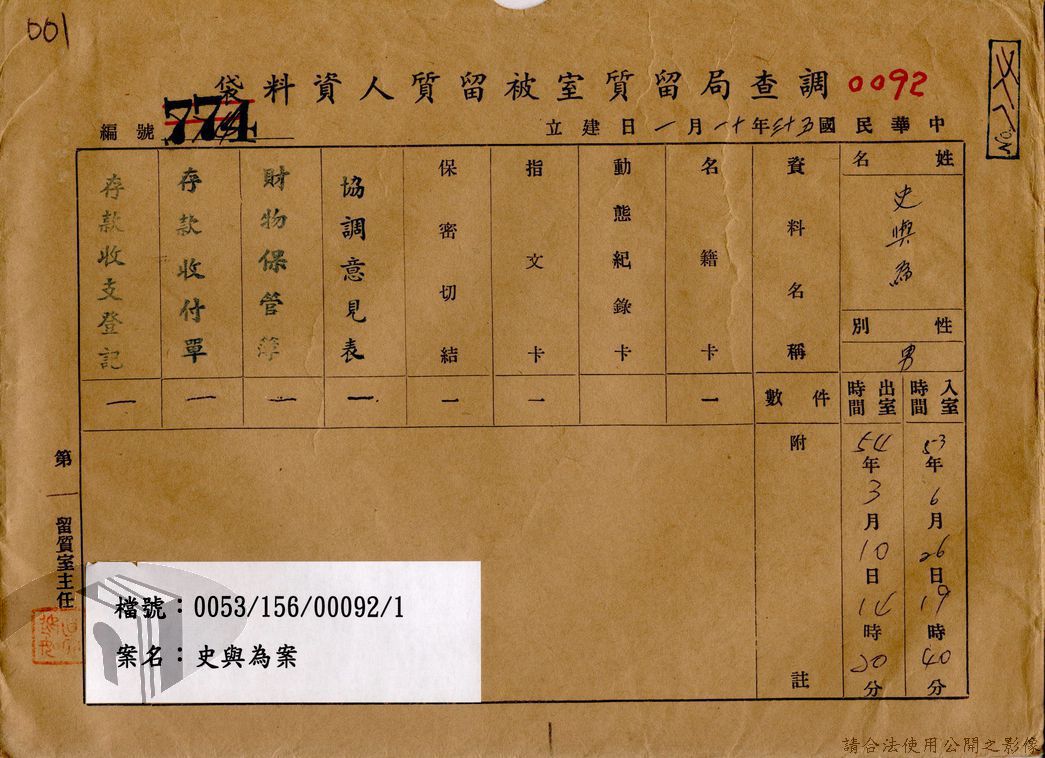 001
調查局留質室被留質人資料袋
0092
中華民國五十三年十一月一日建立
編號 774
姓名
史與為
性別
男
入室時間
53年6月26日19時40分
出室時間
54年3月10日14時20分
資料名稱
件數
附註
名籍卡
一
動態紀錄卡
指文卡
一
保密切結
一
協調意見表
一
財物保管簿
一
存款收付單
一
存款收支登記
一
第一留質室主任
檔號：0053/156/00092/1
案名：史與為案
請合法使用公開之影像